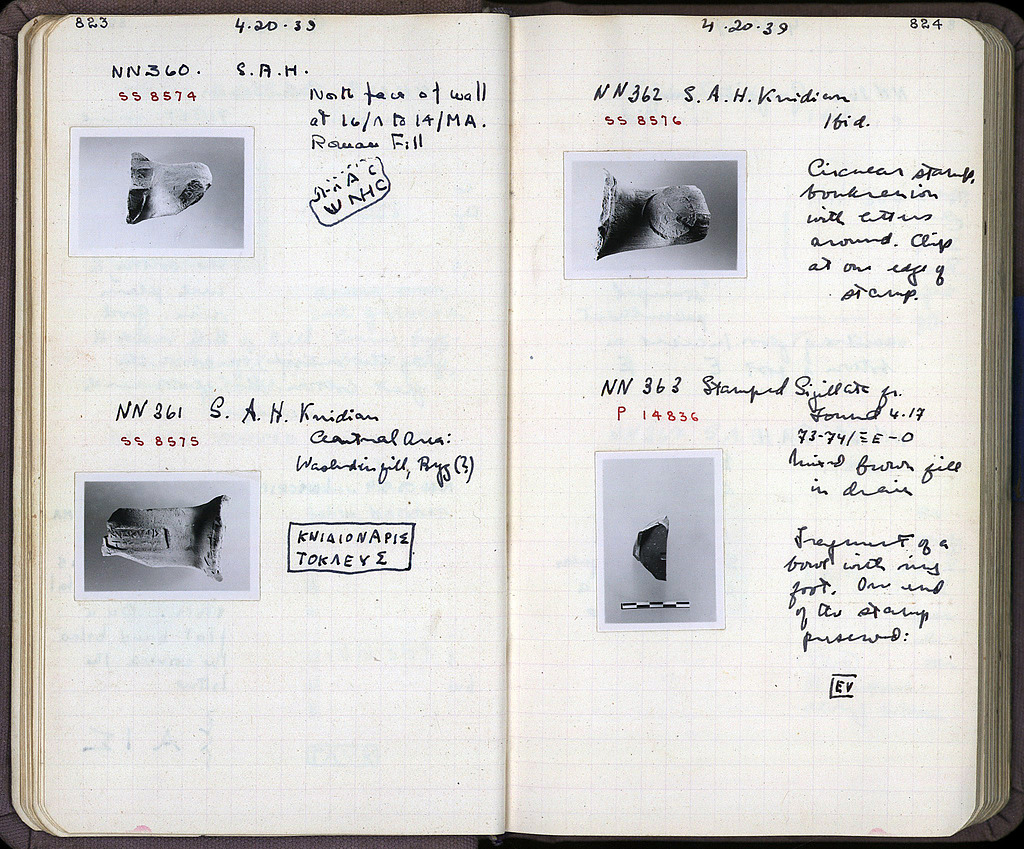 823
4·20·39
NN360. S.A.H.
SS 8574
North face of wall
at 16/Λ to 14/MA.
Roman Fill
NHC
NN361 S. A. H. Knidian
SS 8575
Central Area:
fill, Byz (?)
ΚΝΙΔΙΟΝΑΡΙΣ
ΤΟΚΛΕΥΣ
4·20·39
824
NN362 S. A. H. Knidian
SS 8576
Ibid.
Circular stamp,
boukranion
with letters
around. Chip
at one edge of
stamp.
NN 363 Stamped Sigillata fr.
P 14836
Found 4·17
73-74/ΞΕ-Ο
Mixed brown fill
in drain
Fragment of a
bowl with ring
foot. One end
of the stamp
preserved:
EV